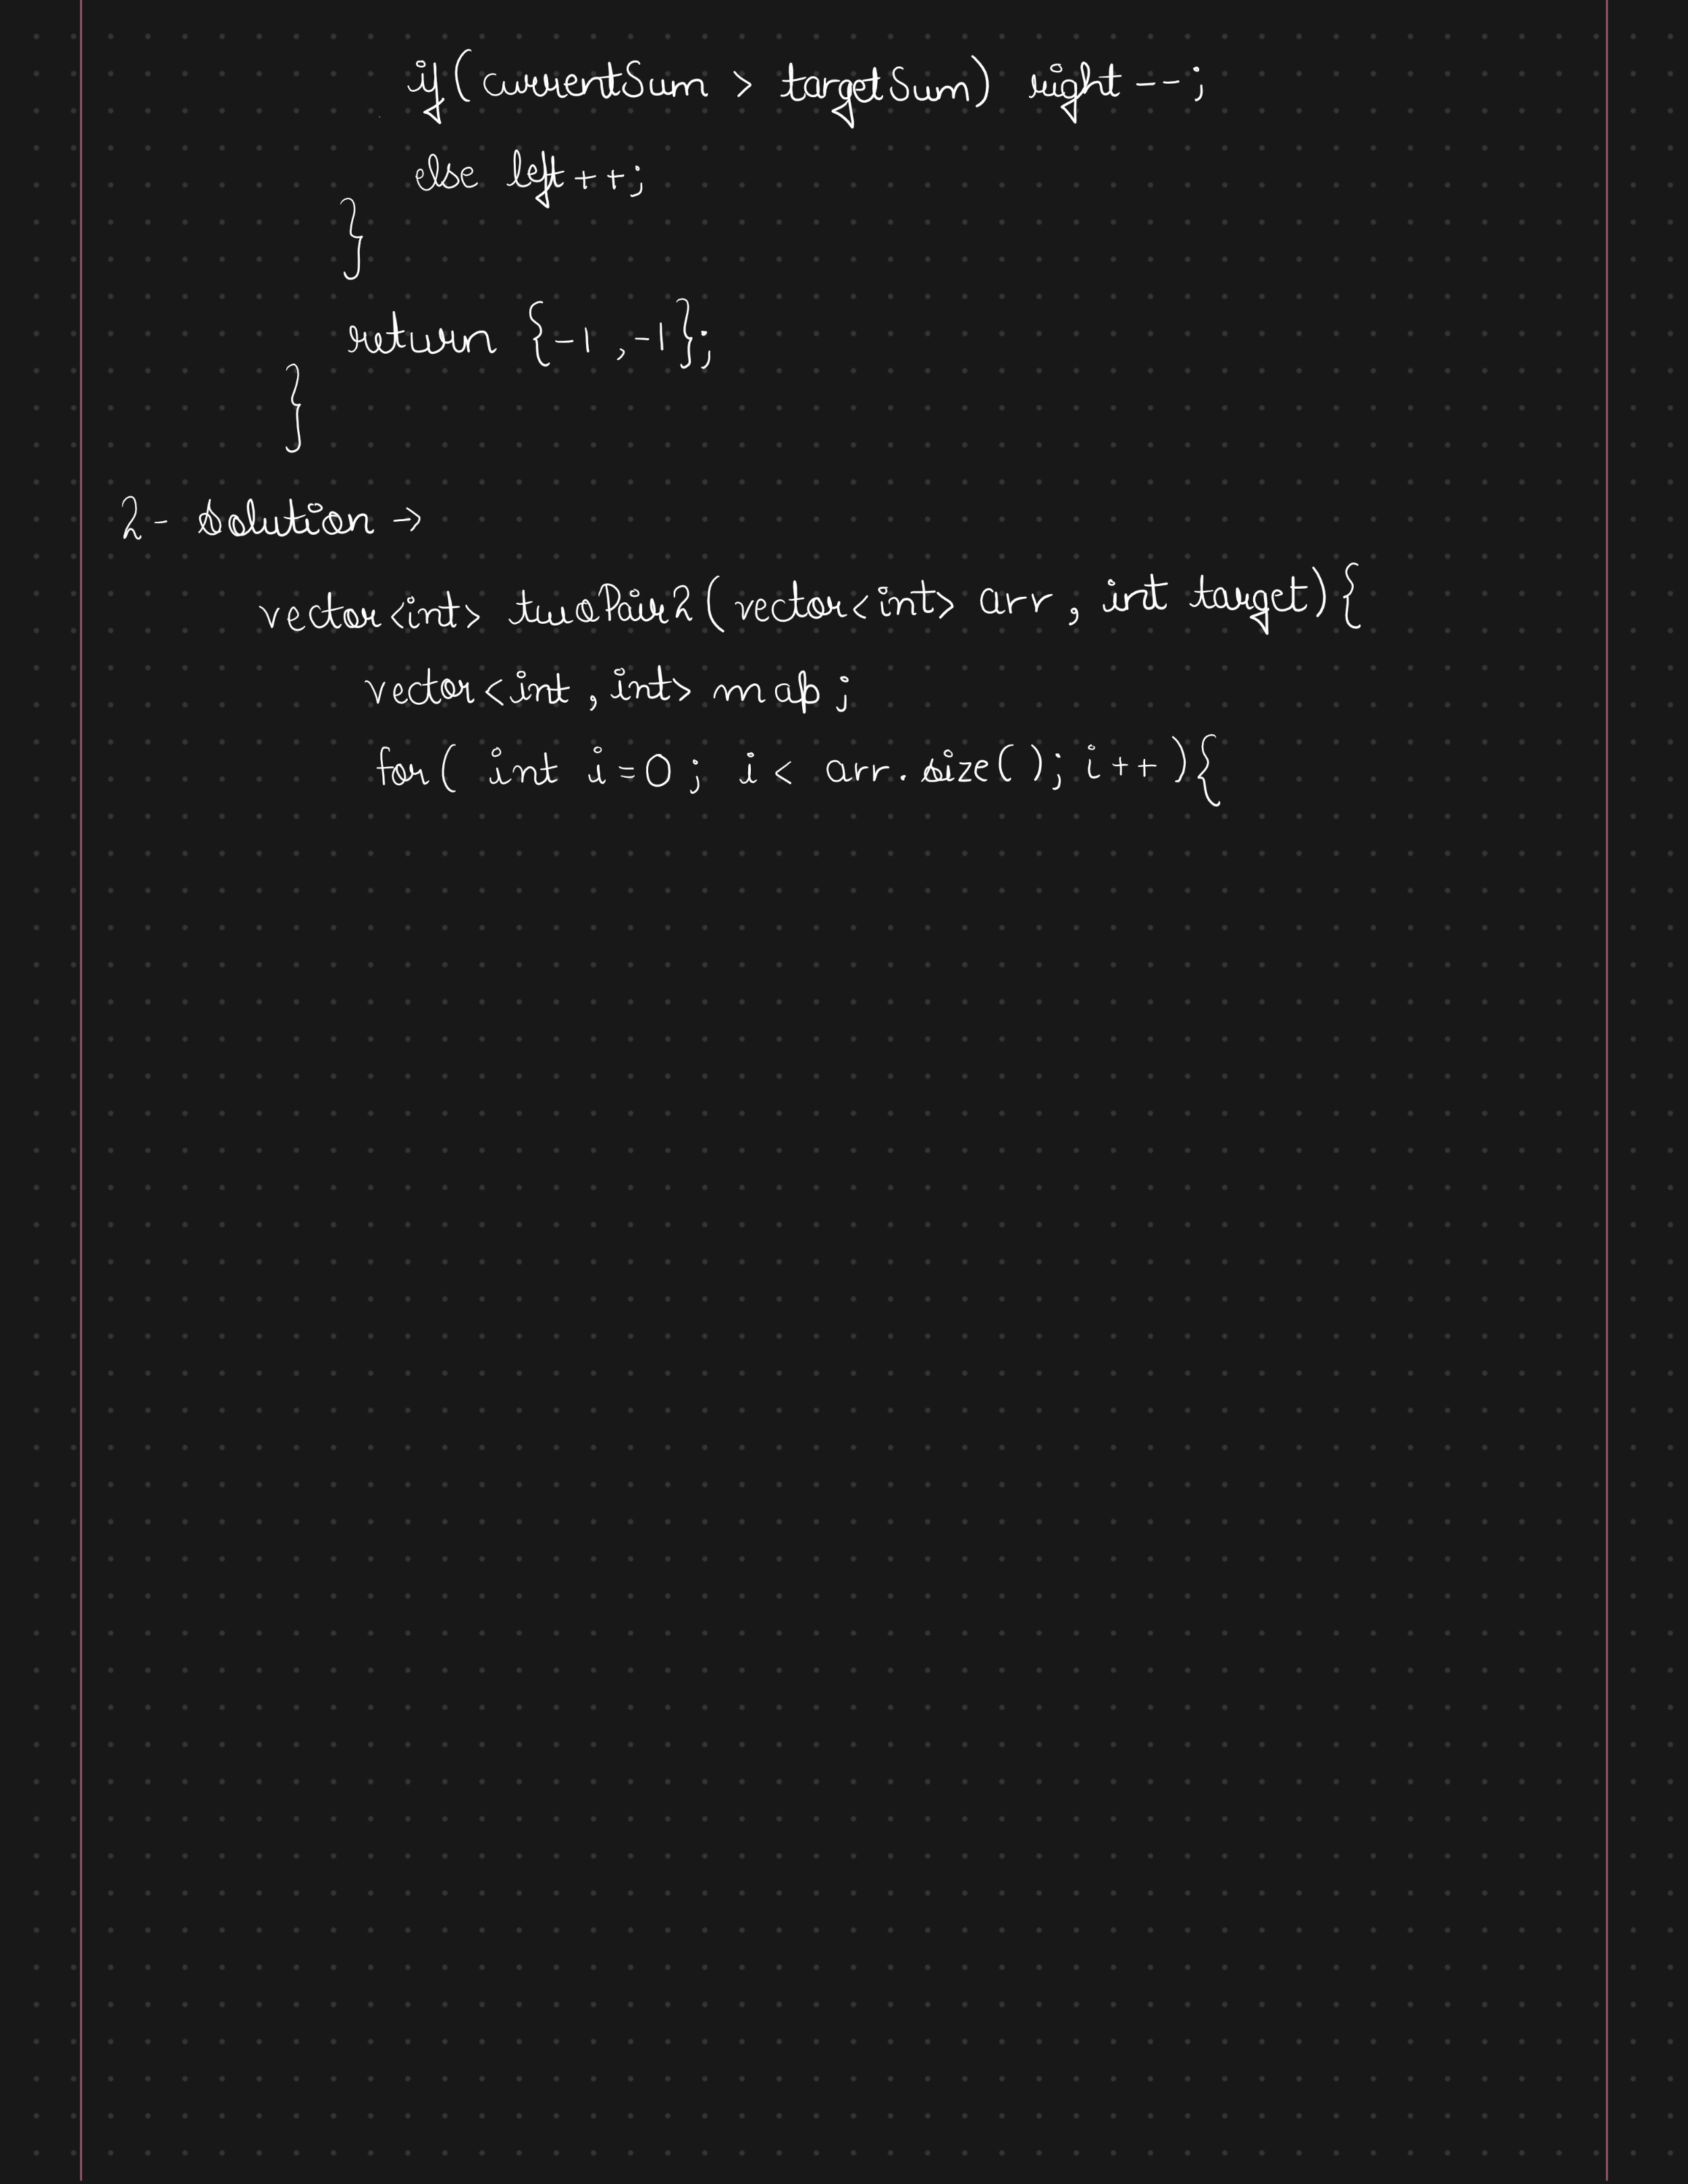 if(currentSum > targetSum) right--;
else left++;
}
return {-1,-1};
}
2- Solution →
vector<int> twoPair2(vector<int> arr, int target){
vector<int, int> map;
for( int i=0; i< arr.size(); i++){